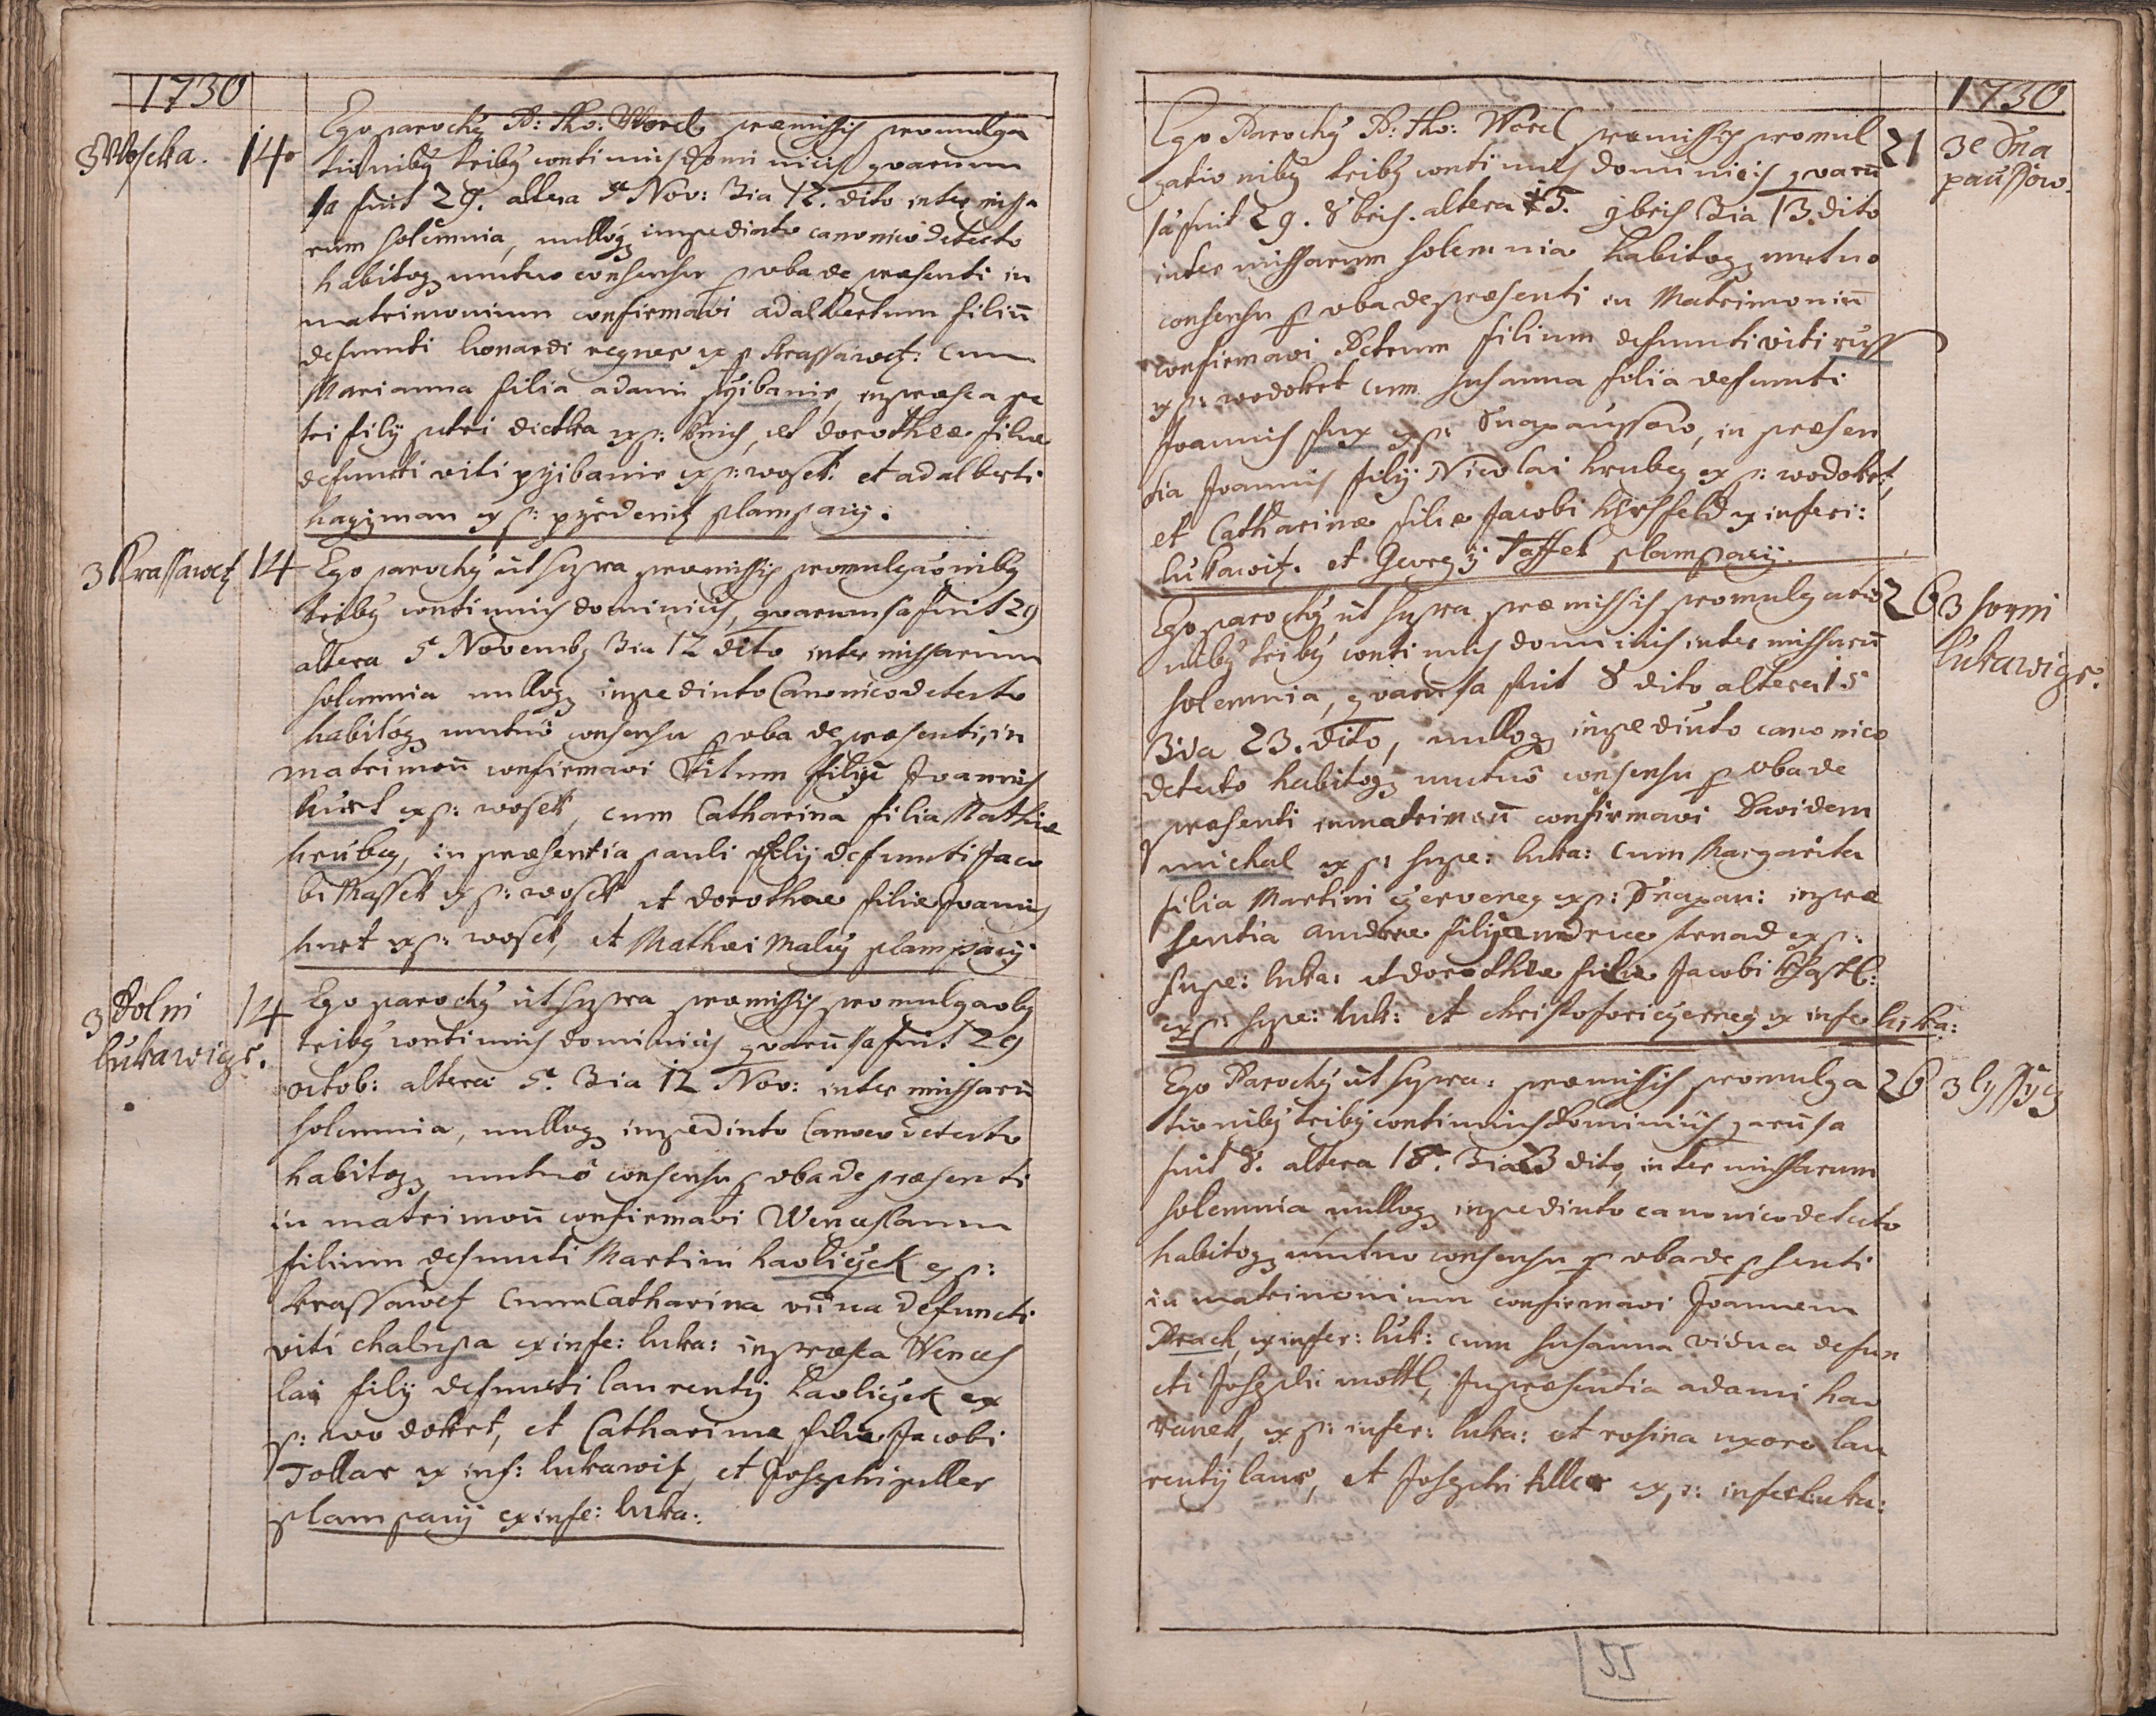 1730
3 Woseka. 14.
Ego parochus P: Tho: Worel præmissis promulga
tionibus tribus continuis dominicis quarum
1a fuit 29. altera 5ta Nov: 3ia 12. dito inter missa
rum solemnia, nulloque impedimto canonico detecto
habitoque mutuo consensu p vba de præsenti in
matrimonium confirmavi adalbertum filiū
defuncti leonardi regner ex p: krassawetz: cum
Marianna filia adami przibanie, in præsea pe
tri filÿ petri dietka ex p: et dorotheæ filiæ
defuncti viti przibanie ex p: wosek: et adalberti
hagzman ex p: plampacÿ.
3 Krassawetz 14
Ego parochus ut supra præmissis promulgaōnibus
tribus continuis dominicis, quarum 1a fuit 29
altera 5 Novemb: 3ia 12 dito inter missarum
solemnia nulloque impedimto Canonico detecto
habitoque mutuô consensu p vba de præsenti, in
matrimoū confirmavi Vitum filiū Joannis
kurt ex p: wosek, cum Catharina filia Mathiæ
hrubey, in præsentia pauli filÿ defuncti Jaco
bi Massek ex p: wosek et dorotheæ filiæ Joannis
hurt ex p: wosek, et Mathæi Malÿ plampacÿ
3 Dolni 14
Lukawicze.
Ego parochus ut supra præmissis promulgaobus
tribus continuis dominicis quarū 1a fuit 29
octob: altera 5ta 3ia 12 Nov: inter missarū
solemnia, nulloque impedimto Canoco detecto
habitoque mutuô consensu p vba de præsenti
in matrimoū confirmavi Wenceslaum
filium defuncti Martini havliczek ex p:
krassawetz cum Catharina vidua defuncti
viti chalupa ex infe: luka: in præsea Wences
lai filÿ defuncti laurentÿ havliczek ex
p: wodokrt, et Catharinæ filiæ Jacobi
Tollar ex inf: lukawitz, et Josephi puller
plampacÿ ex infe: luka:.
1730
21 3e Sna
paussow.
Ego Parochus P: Tho: Worel præmissis promul
gationibus tribus continuis dominicis quarū
1a fuit 29. 8bris. altera 5. 9bris 3ia 13. dito
inter missarum solemnia habitoque mutuo
consensu p vba de præsenti in Matrimoniū
confirmavi Petrum filium defuncti viti russ
ex p: wodokrt cum Susanna filia defuncti
Joannis fux ex p: Snapaussow, in præsen
tia Joannis filÿ Nicolai hrubey ex p: wodokrt,
et Catharinæ filiæ Jacobi Hirschfeld ex inferi:
lukawitz. et Georgÿ Taffek plampacÿ.
26 3 horni
Lukawicze.
Ego parochus ut supra præmissis promulgatio
nibus tribus continuis dominicis inter missarū
solemnia, quarū 1a fuit 8 dito altera 15
3ia 23. dito, nulloque impedimto canonico
detecto habitoque mutuô consensu p vba de
præsenti in matrimoū confirmavi Davidem
michal ex p: supe: luka: cum Margarita
filia Martini czerveney ex p: Snapau: in præ
sentia andreæ filÿ andreæ strnad ex p:
supe: luka: et dorotheæ filiæ Jacobi
ex p: supe: luk: et christofori czerney ex infe luka:
26 3 lissycz
Ego Parochus ut supra: præmissis promulga
tionibus tribus continuis dominicis quarū 1a
fuit 8. altera 18ta 3ia 23 dito, inter missarum
solemnia nulloque impedimto canonico detecto
habitoque mutuo consensu p vba de psenti
in matrimonium confirmavi Joannem
Krach, ex infer: luk: cum Susanna vidua defun
cti Josephi mottl, In præsentia adami hav
ranek, ex p: infer: luka: et rosina uxore lau
rentÿ laur, et Josephi kller ex p: infer luka:
55